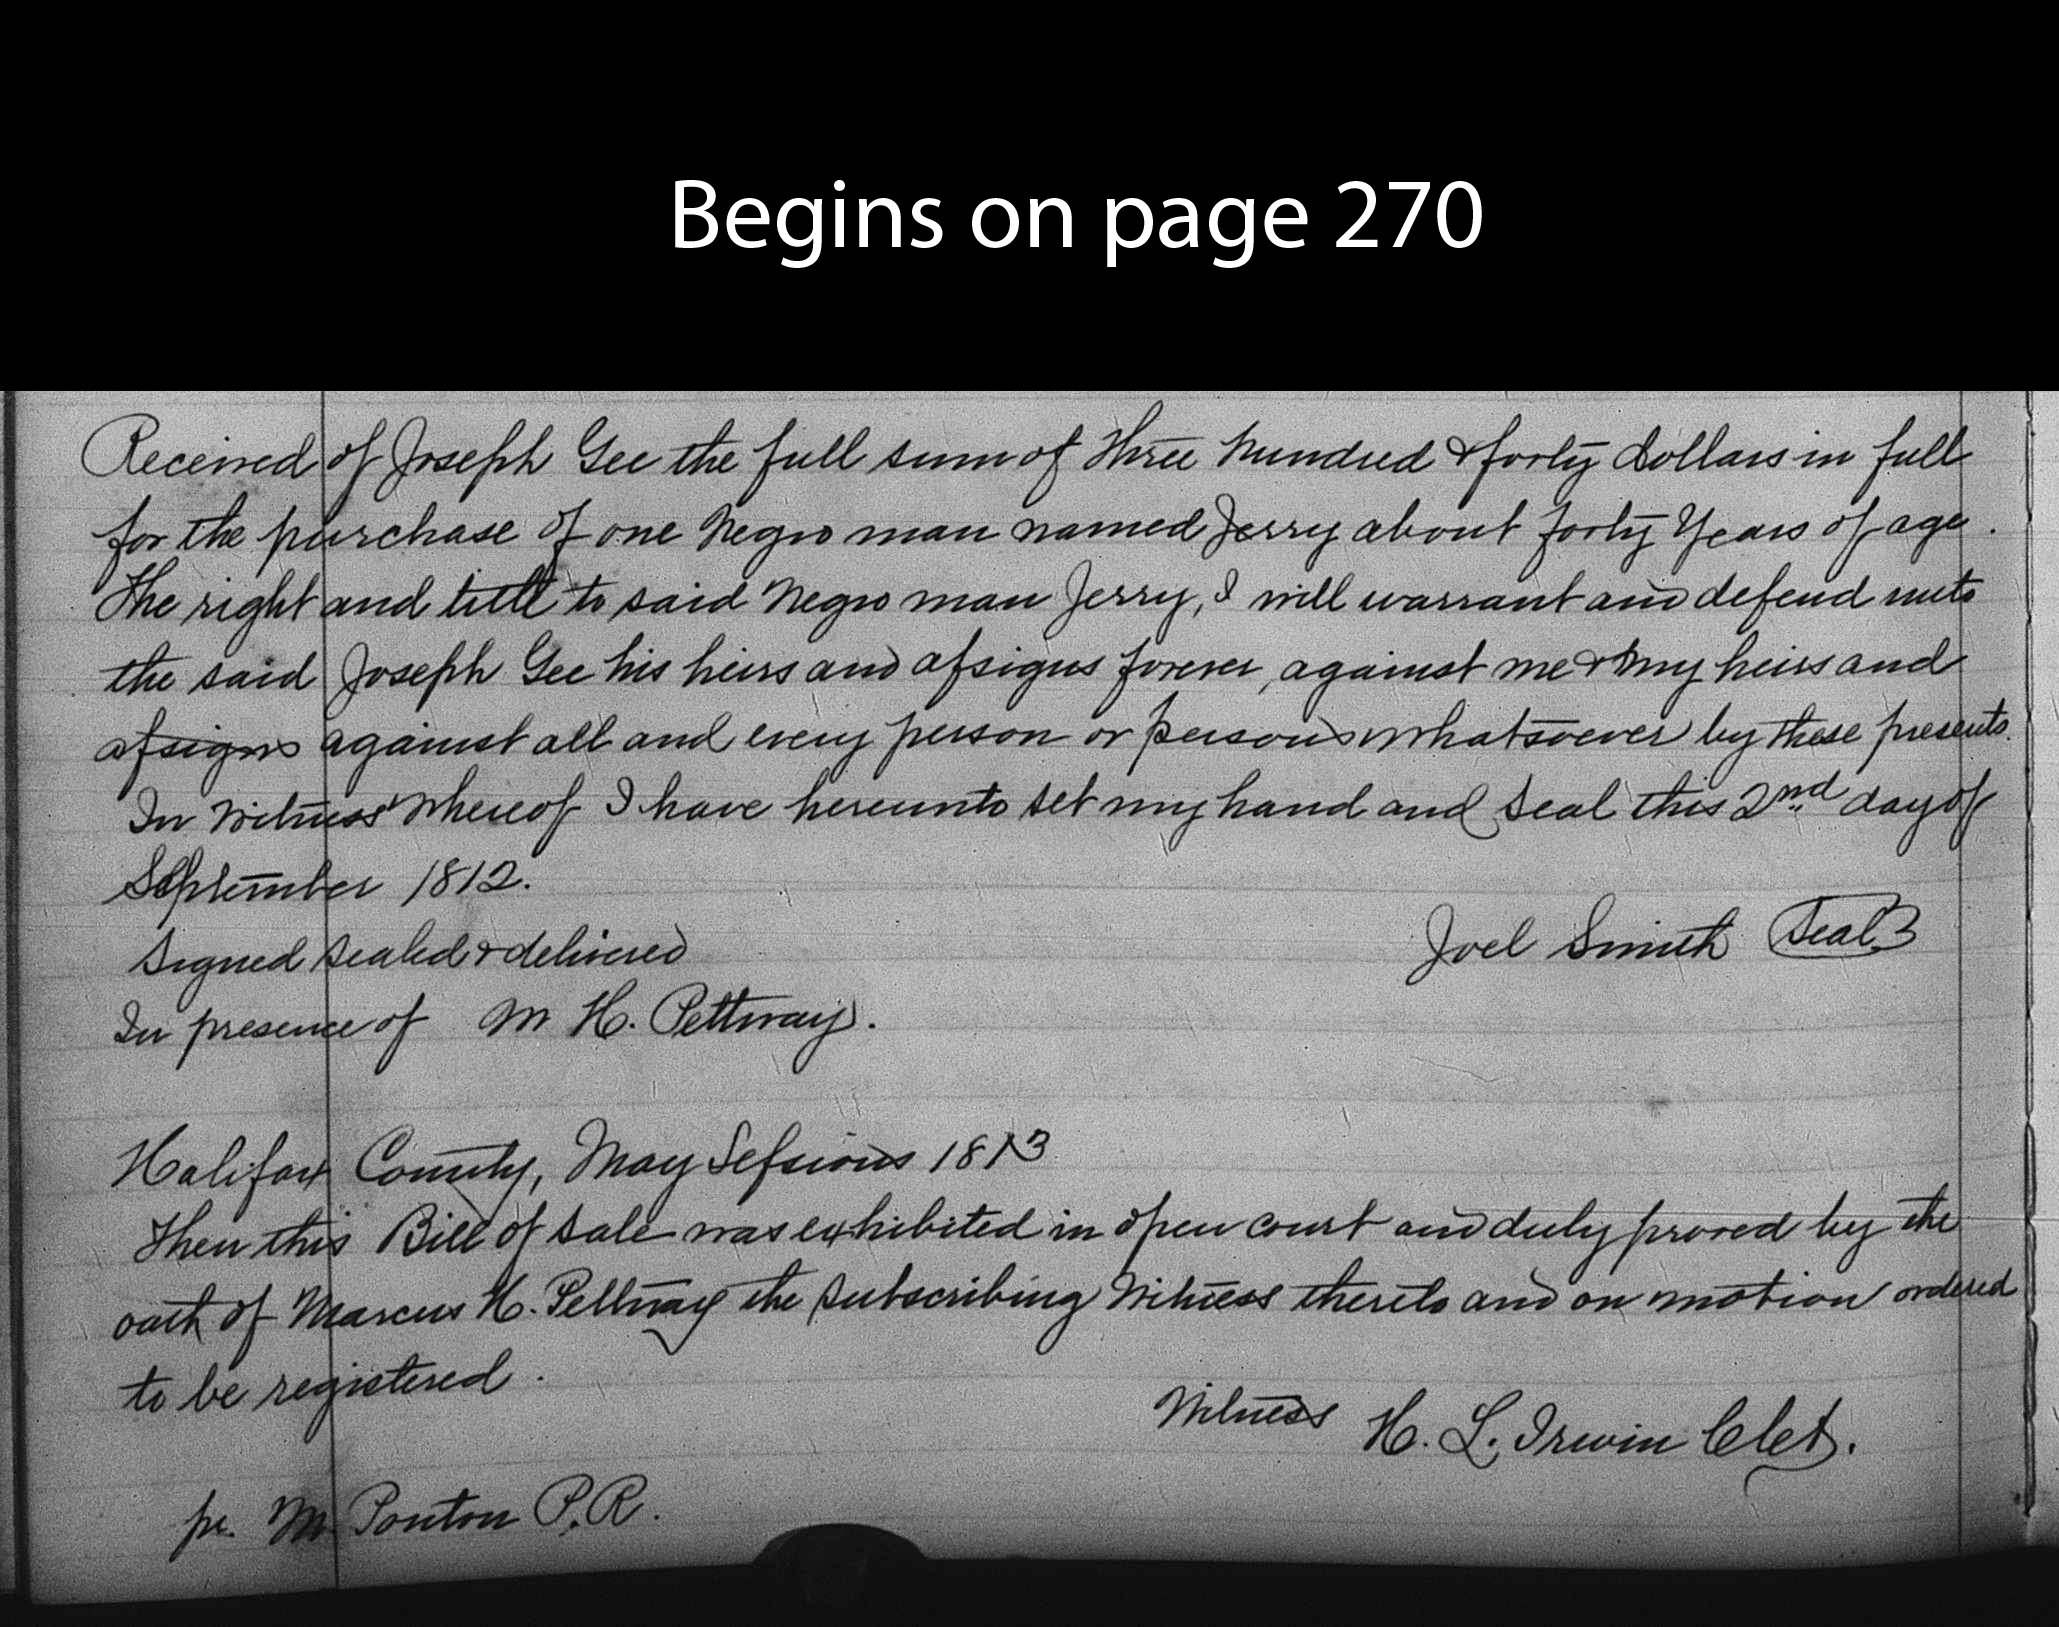 Begins on page 270
Received of Joseph Gee the full sum of three hundred & forty dollars in full
for the purchase of one Negro man named Jerry about forty Years of age.
The right and title to said Negro man Jerry, I will warrant and defend unto
the said Joseph Gee his heirs and assigns forever, against me & my heirs and
assigns against all and every person or persons whatsoever by these presents.
In Witness Whereof I have hereunto set my hand and seal this 2nd day of
September 1812.
Joel Smith Seal
Signed sealed & delivered
In presence of M H. Pettway.
Halifax County, May Sessions 1813
Then this Bill of sale was exhibited in open court and duly proved by the
oath of Marcus H. Pettway the subscribing Witness thereto and on motion ordered
to be registered.
Witness H. L. Irwin Clet.
pr. M. Ponton P.R.